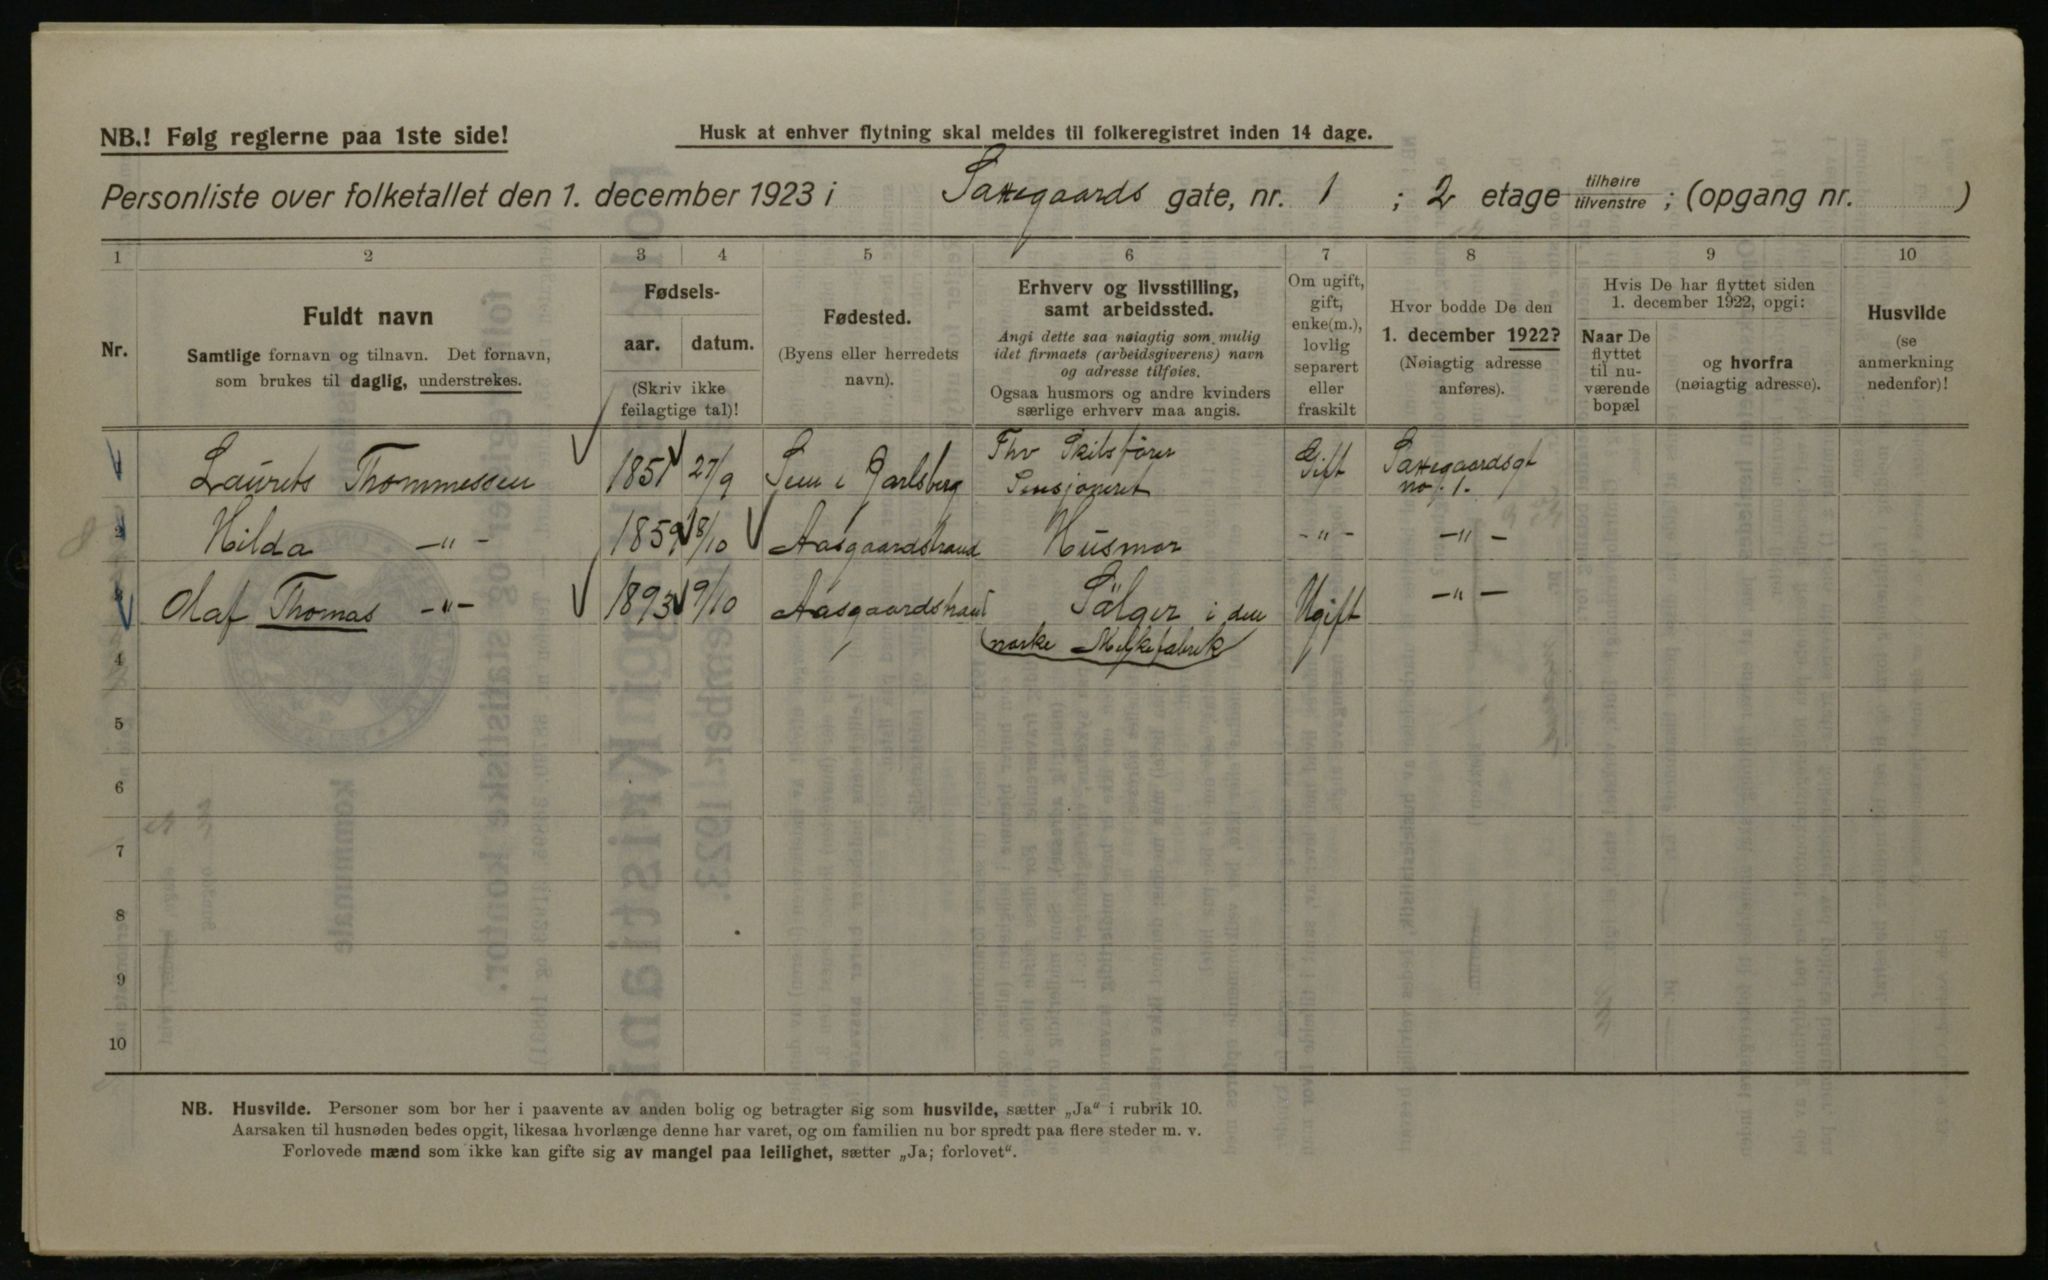 NB.! Følg reglerne paa 1ste side!
Husk at enhver flytning skal meldes til folkeregistret inden 14 dage.
Personliste over folketallet den 1. december 1923 i Saxegaards gate, nr. 1 ; 2 etage tilhøire tilvenstre ; (opgang nr. )
1 2 3 4 5 6 7 8 9 10
Nr.
Fuldt navn
Samtlige fornavn og tilnavn. Det fornavn,
som brukes til daglig, understrekes.
Fødsels-
aar. datum.
(Skriv ikke
feilagtige tal)!
Fødested.
(Byens eller herredets
navn).
Erhverv og livsstilling,
samt arbeidssted.
Angi dette saa nøiagtig som mulig
idet firmaets (arbeidsgiverens) navn
og adresse tilføies.
Ogsaa husmors og andre kvinders
særlige erhverv maa angis.
Om ugift,
gift,
enke(m.),
lovlig
separert
eller
fraskilt
Hvor bodde De den
1. december 1922?
(Nøiagtig adresse
anføres).
Hvis De har flyttet siden
1. december 1922, opgi:
Naar De
flyttet
til nu-
værende
bopæl
og hvorfra
(nøiagtig adresse).
Husvilde
(se
anmerkning
nedenfor)!
1 Laurets Thommessen 1851 27/9 Sem i Jarlsberg Fhv Skibsfører Gift Saxegaardsgt
Pensjoneret no. 1.
2 Hilda -"- 1859 8/10 Aasgaardstrand Husmor -"- -"-
3 Olaf Thomas -"- 1893 9/10 Aasgaardstrand Sälger i den Ugift -"-
norske Melkefabrik
4
5
6
7
8
9
10
NB. Husvilde. Personer som bor her i paavente av anden bolig og betragter sig som husvilde, sætter „Ja“ i rubrik 10.
Aarsaken til husnøden bedes opgit, likesaa hvorlænge denne har varet, og om familien nu bor spredt paa flere steder m. v.
Forlovede mænd som ikke kan gifte sig av mangel paa leilighet, sætter „Ja; forlovet“.